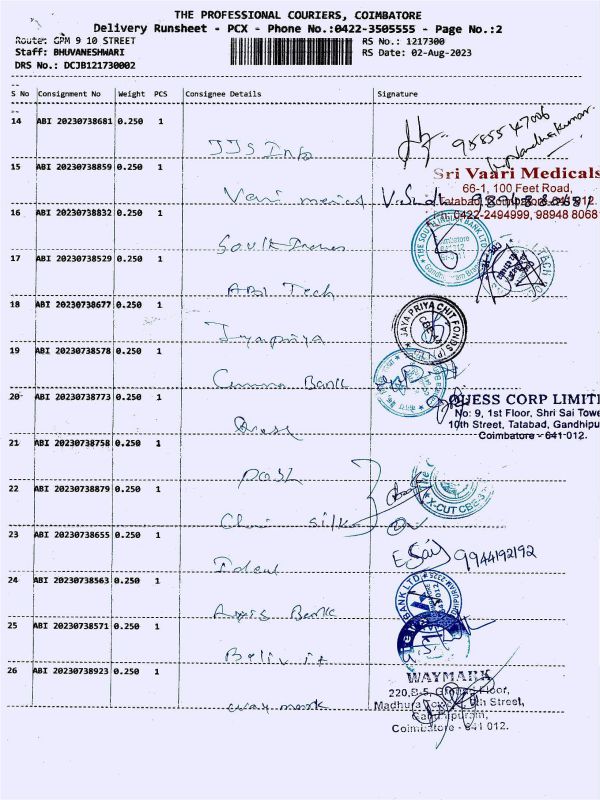 THE PROFESSIONAL COURIERS, COIMBATORE
Delivery Runsheet - PCX - Phone No.:0422-3505555 - Page No.:2
Route: GPM 9 10 STREET
RS No.: 1217300
Staff: BHUVANESHWARI
RS Date: 02-Aug-2023
DRS No.: DCJB121730002
S No Consignment No Weight PCS Consignee Details Signature
14 ABI 20230738681 0.250 1
9585547006
JJS Info
15 ABI 20230738859 0.250 1
Sri Vaari Medicals
66-1, 100 Feet Road,
Vani
Tatabad, Coimbatore-641 012.
Ph: 0422-2494999, 98948 8068
16 ABI 20230738832 0.250 1
THE SOUTH INDIAN BANK LTD
South Indian
17 ABI 20230738529 0.250 1
ABI Tech
18 ABI 20230738677 0.250 1
JAYA PRIYA CHIT FONDS (P) LTD
Jyapriya
19 ABI 20230738578 0.250 1
Bank
20 ABI 20230738773 0.250 1
QUESS CORP LIMITE
No: 9, 1st Floor, Shri Sai Towe
10th Street, Tatabad, Gandhipu
Coimbatore - 641 012.
21 ABI 20230738758 0.250 1
X-CUT CBE-3
22 ABI 20230738879 0.250 1
silks
23 ABI 20230738655 0.250 1
9944192192
Ideal
24 ABI 20230738563 0.250 1
BANK LTD
Bank
25 ABI 20230738571 0.250 1
26 ABI 20230738923 0.250 1
WAYMARK
220, B-5, Ground Floor,
Madhura Towers, 9th Street,
way mark
Gandhipuram,
Coimbatore - 641 012.